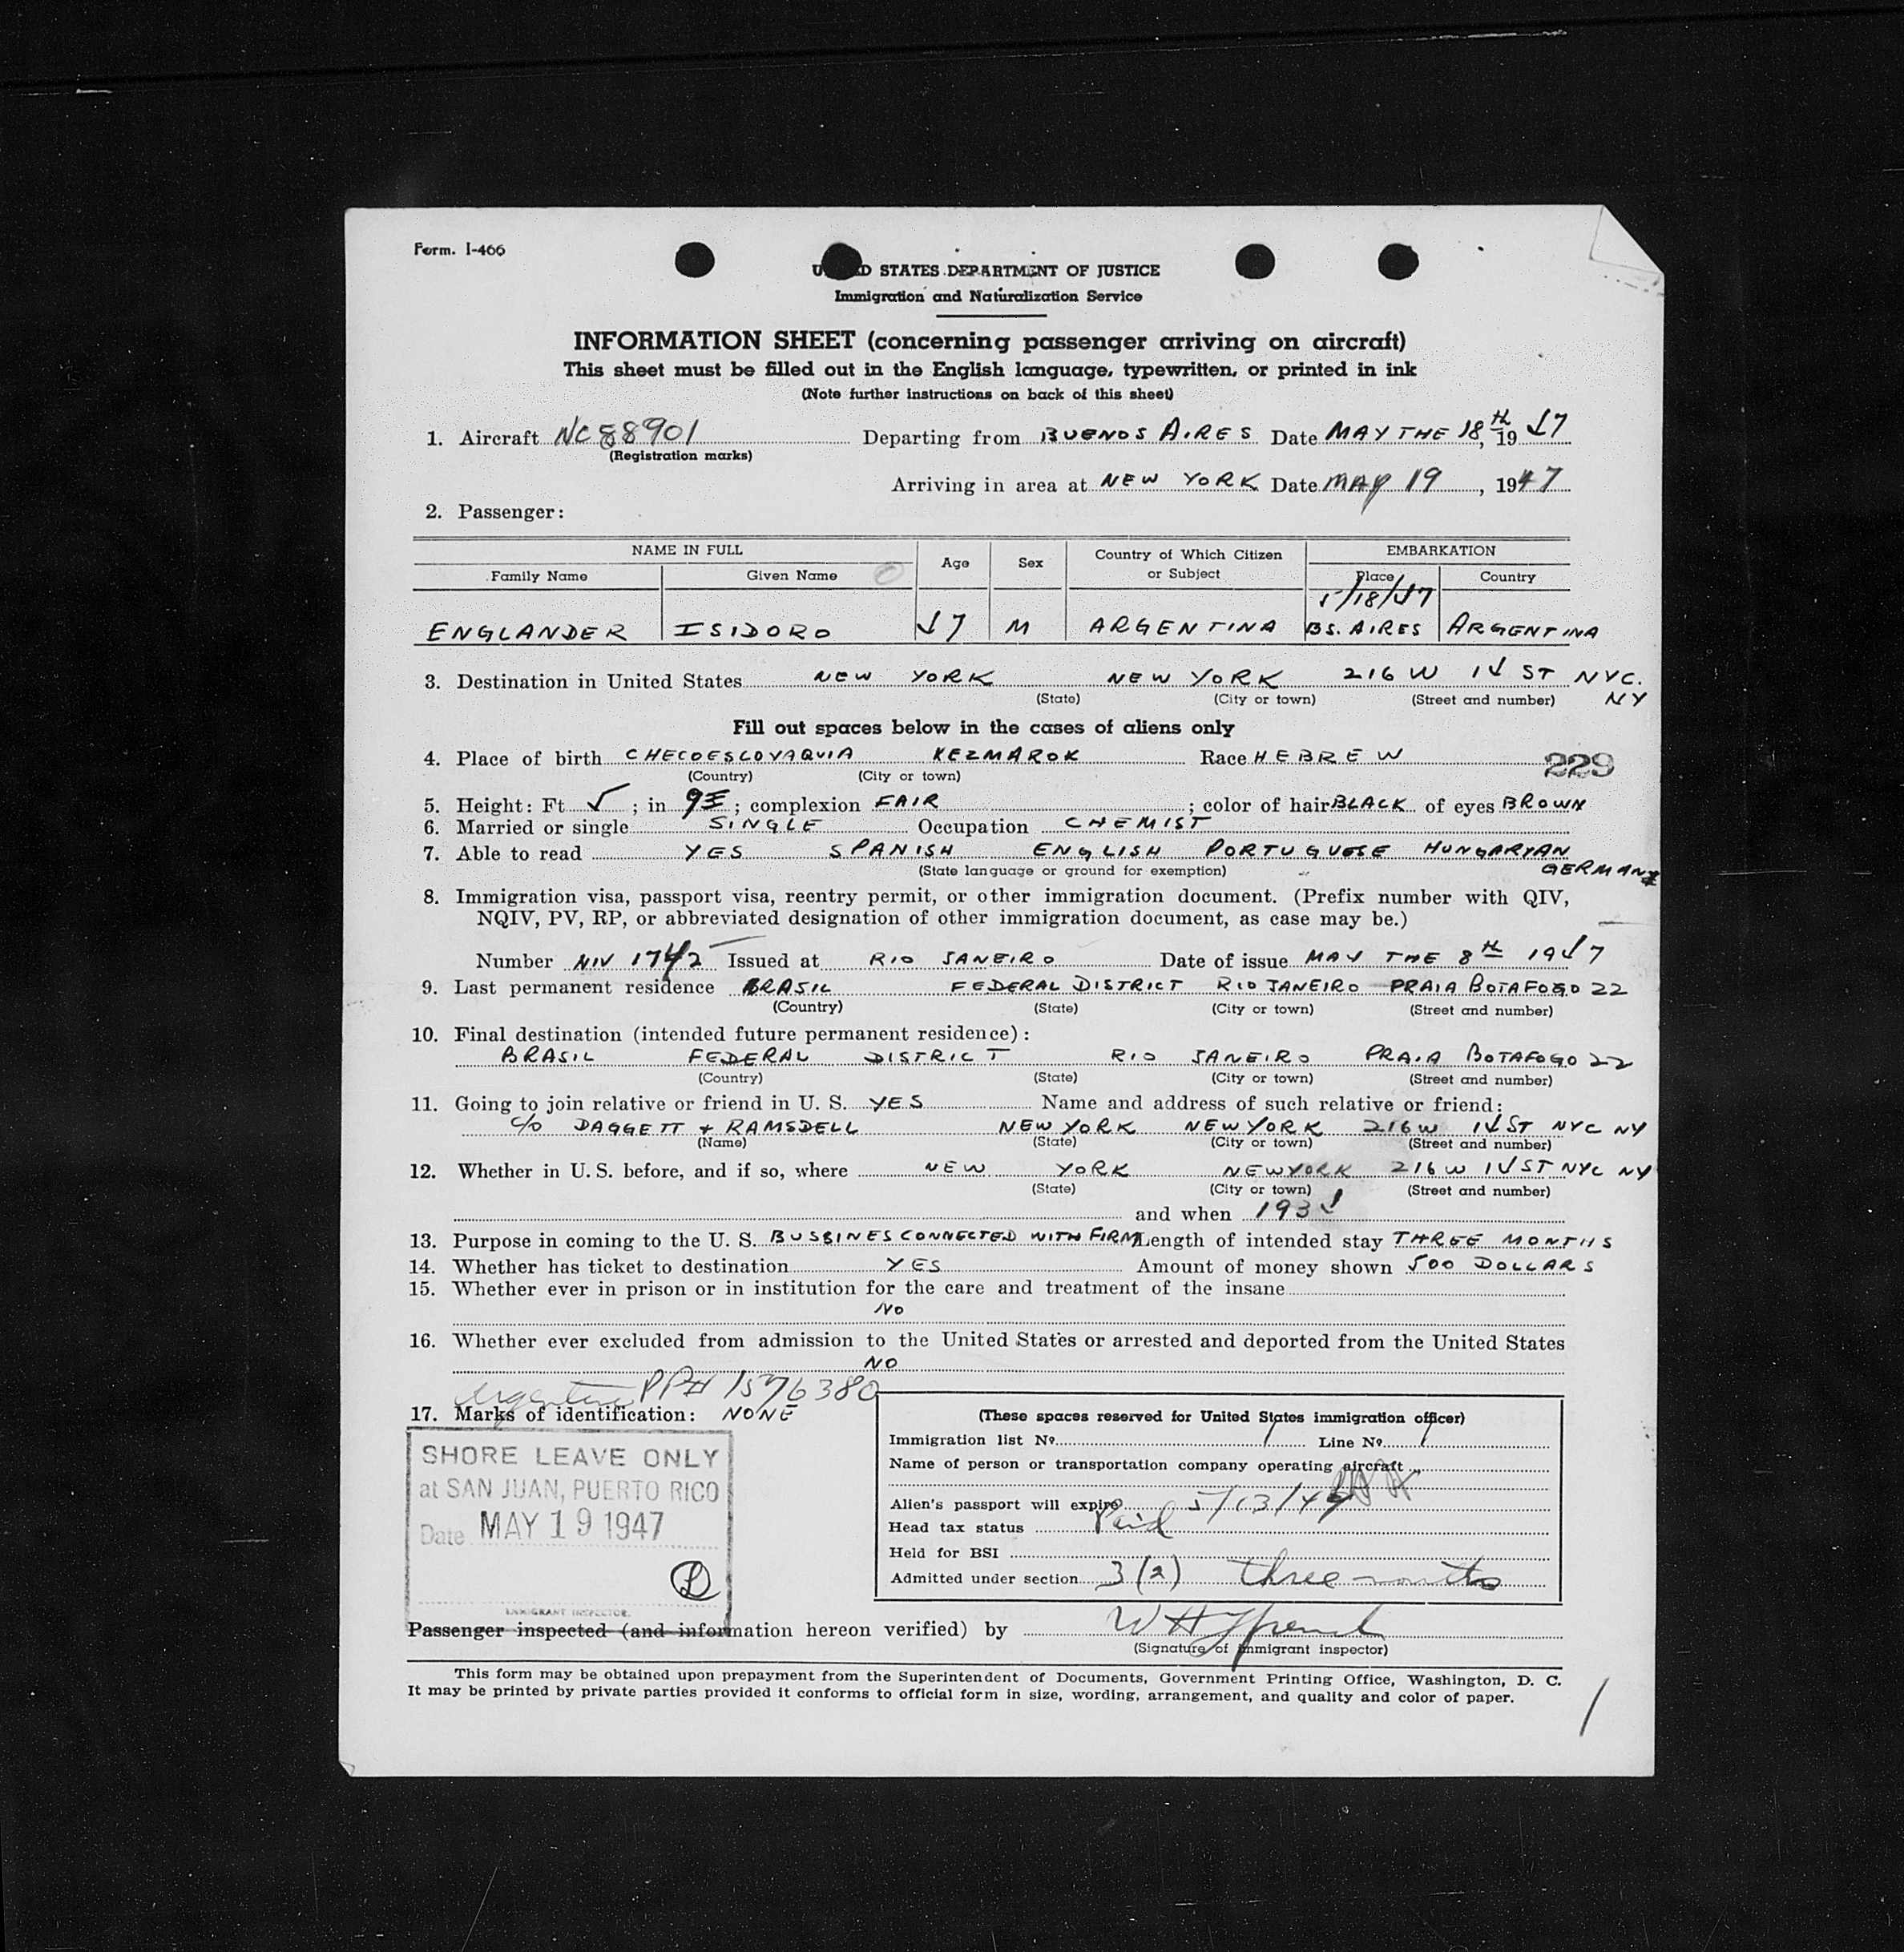 Form. I-466
UNITED STATES DEPARTMENT OF JUSTICE
Immigration and Naturalization Service
INFORMATION SHEET (concerning passenger arriving on aircraft)
This sheet must be filled out in the English language, typewritten, or printed in ink
(Note further instructions on back of this sheet)
1. Aircraft NC88901 Departing from BUENOS AIRES Date MAY THE 18th, 1947
(Registration marks)
Arriving in area at NEW YORK Date MAY 19, 1947
2. Passenger:
NAME IN FULL Age Sex Country of Which Citizen or Subject EMBARKATION
Family Name Given Name Place Country
5/18/47
ENGLANDER ISIDORO 47 M ARGENTINA BS. AIRES ARGENTINA
3. Destination in United States NEW YORK NEW YORK 216 W 14 ST NYC.
(State) (City or town) (Street and number) NY
Fill out spaces below in the cases of aliens only
4. Place of birth CHECOESLOVAQVIA KEZMAROK Race HEBREW 229
(Country) (City or town)
5. Height: Ft 5; in 9; complexion FAIR; color of hair BLACK of eyes BROWN
6. Married or single SINGLE Occupation CHEMIST
7. Able to read YES SPANISH ENGLISH PORTUGUESE HUNGARYAN
(State language or ground for exemption) GERMAN
8. Immigration visa, passport visa, reentry permit, or other immigration document. (Prefix number with QIV,
NQIV, PV, RP, or abbreviated designation of other immigration document, as case may be.)
Number NIV 1742 Issued at RIO JANEIRO Date of issue MAY THE 8th 1947
9. Last permanent residence BRASIL FEDERAL DISTRICT RIO JANEIRO PRAIA BOTAFOGO 22
(Country) (State) (City or town) (Street and number)
10. Final destination (intended future permanent residence):
BRASIL FEDERAL DISTRICT RIO JANEIRO PRAIA BOTAFOGO 22
(Country) (State) (City or town) (Street and number)
11. Going to join relative or friend in U. S. YES Name and address of such relative or friend:
c/o DAGGETT + RAMSDELL NEW YORK NEW YORK 216 W 14 ST NYC NY
(Name) (State) (City or town) (Street and number)
12. Whether in U. S. before, and if so, where NEW YORK NEWYORK 216 W 14 ST NYC NY
(State) (City or town) (Street and number)
and when 1934
13. Purpose in coming to the U. S. BUSSINES CONNECTED WITH FIRM Length of intended stay THREE MONTHS
14. Whether has ticket to destination YES Amount of money shown 500 DOLLARS
15. Whether ever in prison or in institution for the care and treatment of the insane
NO
16. Whether ever excluded from admission to the United States or arrested and deported from the United States
NO
Argentine PP# 1576380
17. Marks of identification: NONE
SHORE LEAVE ONLY
at SAN JUAN, PUERTO RICO
Date MAY 19 1947
IMMIGRANT INSPECTOR.
(These spaces reserved for United States immigration officer)
Immigration list No. 1 Line No. 1
Name of person or transportation company operating aircraft
Alien's passport will expire 5/13/49
Head tax status Paid
Held for BSI
Admitted under section 3(2) three months
Passenger inspected (and information hereon verified) by
(Signature of immigrant inspector)
This form may be obtained upon prepayment from the Superintendent of Documents, Government Printing Office, Washington, D. C.
It may be printed by private parties provided it conforms to official form in size, wording, arrangement, and quality and color of paper.